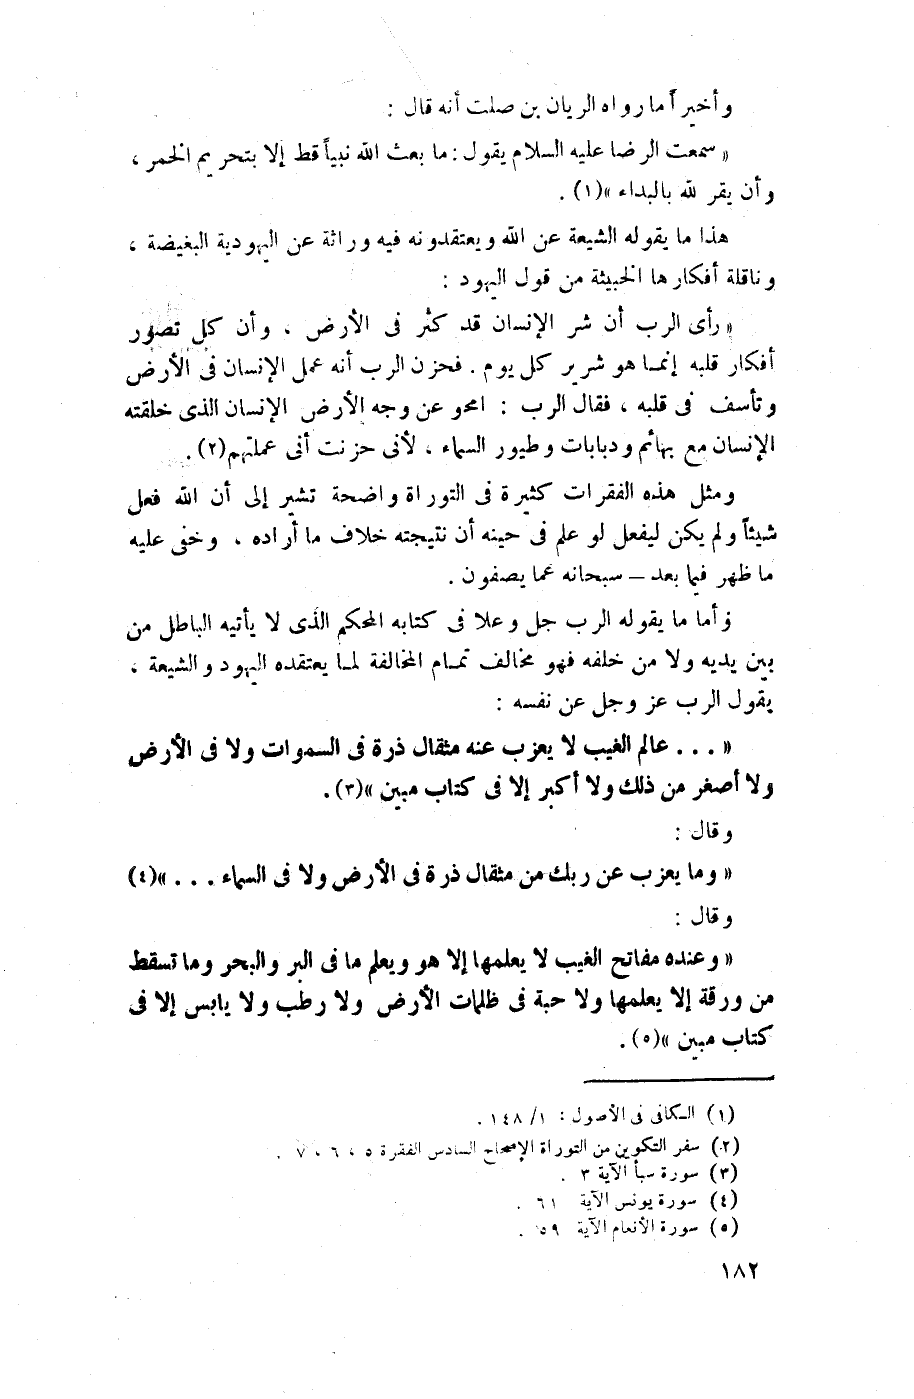 وأخيراً ما رواه الريان بن صلت أنه قال :
« سمعت الرضا عليه السلام يقول : ما بعث الله نبياً قط إلا بتحريم الخمر ،
وأن يقر لله بالبداء »(١) .
هذا ما يقوله الشيعة عن الله ويعتقدونه فيه وراثة عن اليهودية البغيضة ،
وناقلة أفكارها الخبيثة من قول اليهود :
« رأى الرب أن شر الإنسان قد كثر فى الأرض . وأن كل تصور
أفكار قلبه إنما هو شرير كل يوم . فحزن الرب أنه عمل الإنسان فى الأرض
وتأسف فى قلبه ، فقال الرب : امحو عن وجه الأرض الإنسان الذى خلقته
الإنسان مع بهائم ودبابات وطيور السماء ، لأنى حزنت أنى عملتهم(٢) .
ومثل هذه الفقرات كثيرة فى التوراة واضحة تشير إلى أن الله فعل
شيئاً ولم يكن ليفعل لو علم فى حينه أن نتيجته خلاف ما أراده . وخفى عليه
ما ظهر فيما بعد — سبحانه عما يصفون .
وأما ما يقوله الرب جل وعلا فى كتابه المحكم الذى لا يأتيه الباطل من
بين يديه ولا من خلفه فهو مخالف تمام المخالفة لما يعتقده اليهود والشيعة ،
يقول الرب عز وجل عن نفسه :
« ... عالم الغيب لا يعزب عنه مثقال ذرة فى السموات ولا فى الأرض
ولا أصغر من ذلك ولا أكبر إلا فى كتاب مبين »(٣) .
وقال :
« وما يعزب عن ربك من مثقال ذرة فى الأرض ولا فى السماء ... »(٤)
وقال :
« وعنده مفاتح الغيب لا يعلمها إلا هو ويعلم ما فى البر والبحر وما تسقط
من ورقة إلا يعلمها ولا حبة فى ظلمات الأرض ولا رطب ولا يابس إلا فى
كتاب مبين »(٥) .
(١) الكافى فى الأصول : ١/ ١٤٨ .
(٢) سفر التكوين من التوراة الإصحاح السادس الفقرة ٥ ، ٦ ، ٧ .
(٣) سورة سبأ الآية ٣ .
(٤) سورة يونس الآية ٦١ .
(٥) سورة الأنعام الآية ٥٩ .
١٨٢